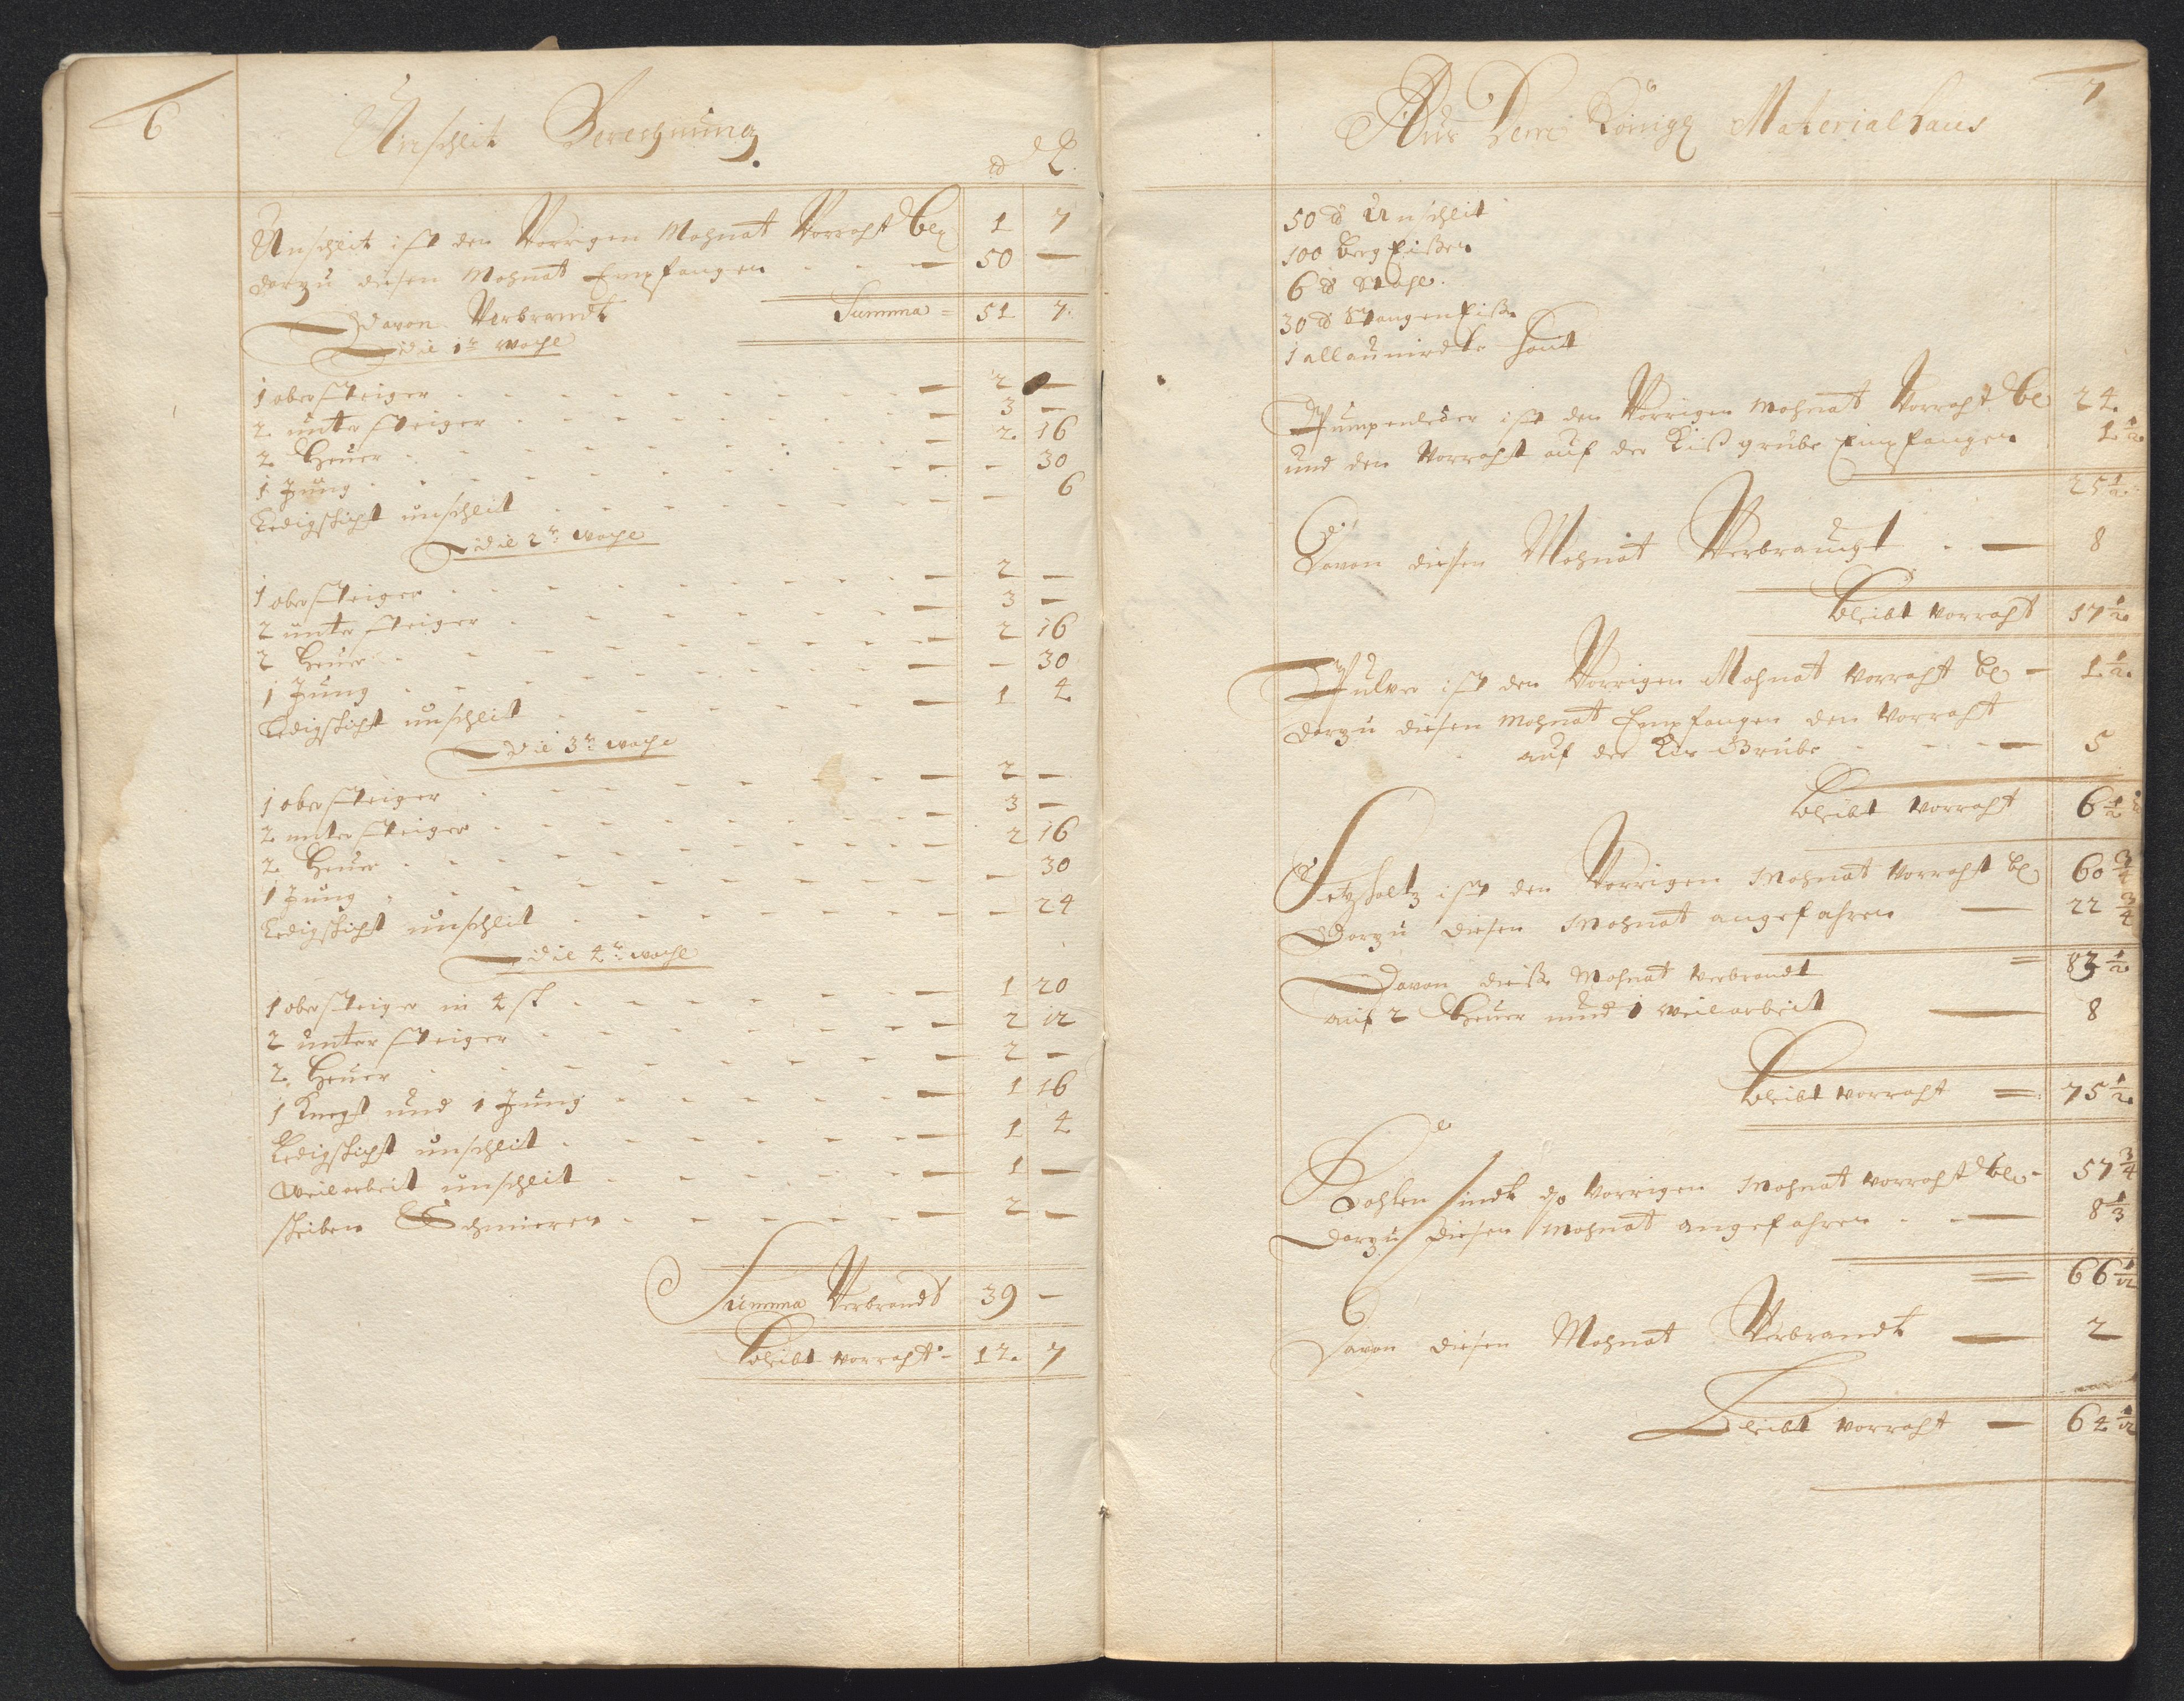 6
Unschlit Berechnung
℔ L.
Unschlit ist den Vorrigen Mohnat Vorraht bl 1 7
darzu diesen Mohnat Empfangen - - 50 —
Davon Verbrandt Summa = 51 7.
Die 1te woche
1 obersteiger - - - 2 —
2 untersteiger - - - 3 —
2 Heuer - - - 2 16
1 Jung - - - — 30
Ledigschicht unschlit - - - — 6
Die 2te woche
1 obersteiger - - - 2 —
2 untersteiger - - - 3 —
2 Heuer - - - 2 16
1 Jung - - - — 30
Ledigschicht unschlit - - - 1 4
Die 3te woche
1 obersteiger - - - 2 —
2 untersteiger - - - 3 —
2 Heuer - - - 2 16
1 Jung - - - — 30
Ledigschicht unschlit - - - — 24
Die 4te woche
1 obersteiger in 4 sch - - - 1 20
2 untersteiger - - - 2 12
2 Heuer - - - 2 —
1 Knecht und 1 Jung - - - 1 16
Ledigschicht unschlit - - - 1 4
Weilarbeit unschlit - - - 1 —
scheiben Schmieren - - - 2 —
Summa Verbrandt 39 —
bleibt vorraht - 12. 7
7
Aus Dem Königl Materialhaus
50 ℔ Unschlit
100 berg Eißen
6 ℔ Stahl.
30 ℔ Stangen Eiße
1 allaunirdte Haut
Pumpenleder ist den Vorrigen Mohnat Vorraht bl 24
und den Vorraht auf der Kiß grube Empfangen 1 1/2
25 1/2
Davon diesen Mohnat Verbraucht - — 8
bleibt vorraht 17 1/2
Pulver ist den Vorrigen Mohnat vorraht bl - 1 1/2
darzu diesen Mohnat Empfangen den vorraht
auf der Kis Grube - - — 5
bleibt vorraht 6 1/2
Setzholtz ist den Vorrigen Mohnat vorraht bl 60 3/4
Darzu diesen Mohnat angefahren — 22 3/4
= 83 1/2
Davon dieße Mohnat verbrandt
auf 2 Heuer und 1 weilarbeit — 8
bleibt vorraht = 75 1/2
Kohlen sindt do Vorrigen Mohnat vorraht bl - 57 3/4
Darzu diesen Mohnat angefahren - — 8 1/3
= 66 1/12
Davon diesen Mohnat Verbrandt — 2
Bleibt vorraht — 64 1/12